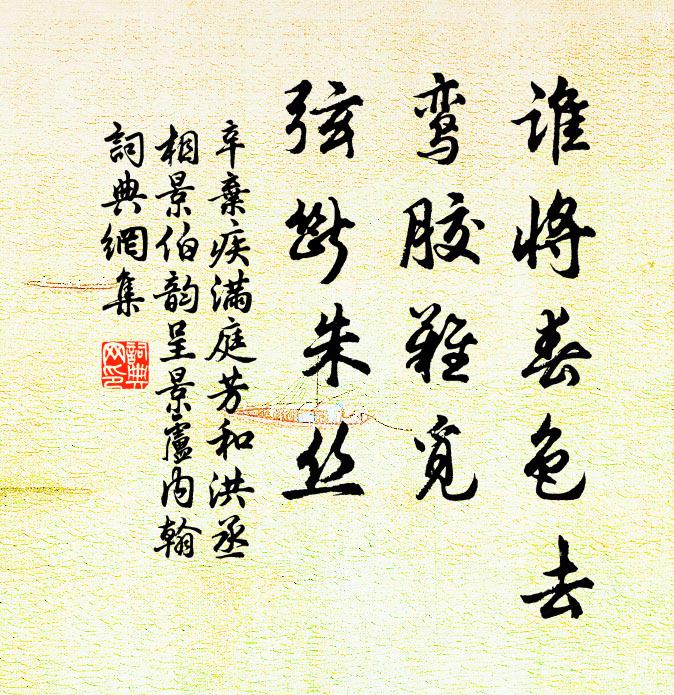 谁将春色去
鸾胶难觅
弦断朱丝
辛棄疾满庭芳和洪丞
相景伯韵呈景廬内翰
詞典網集
詞典网印